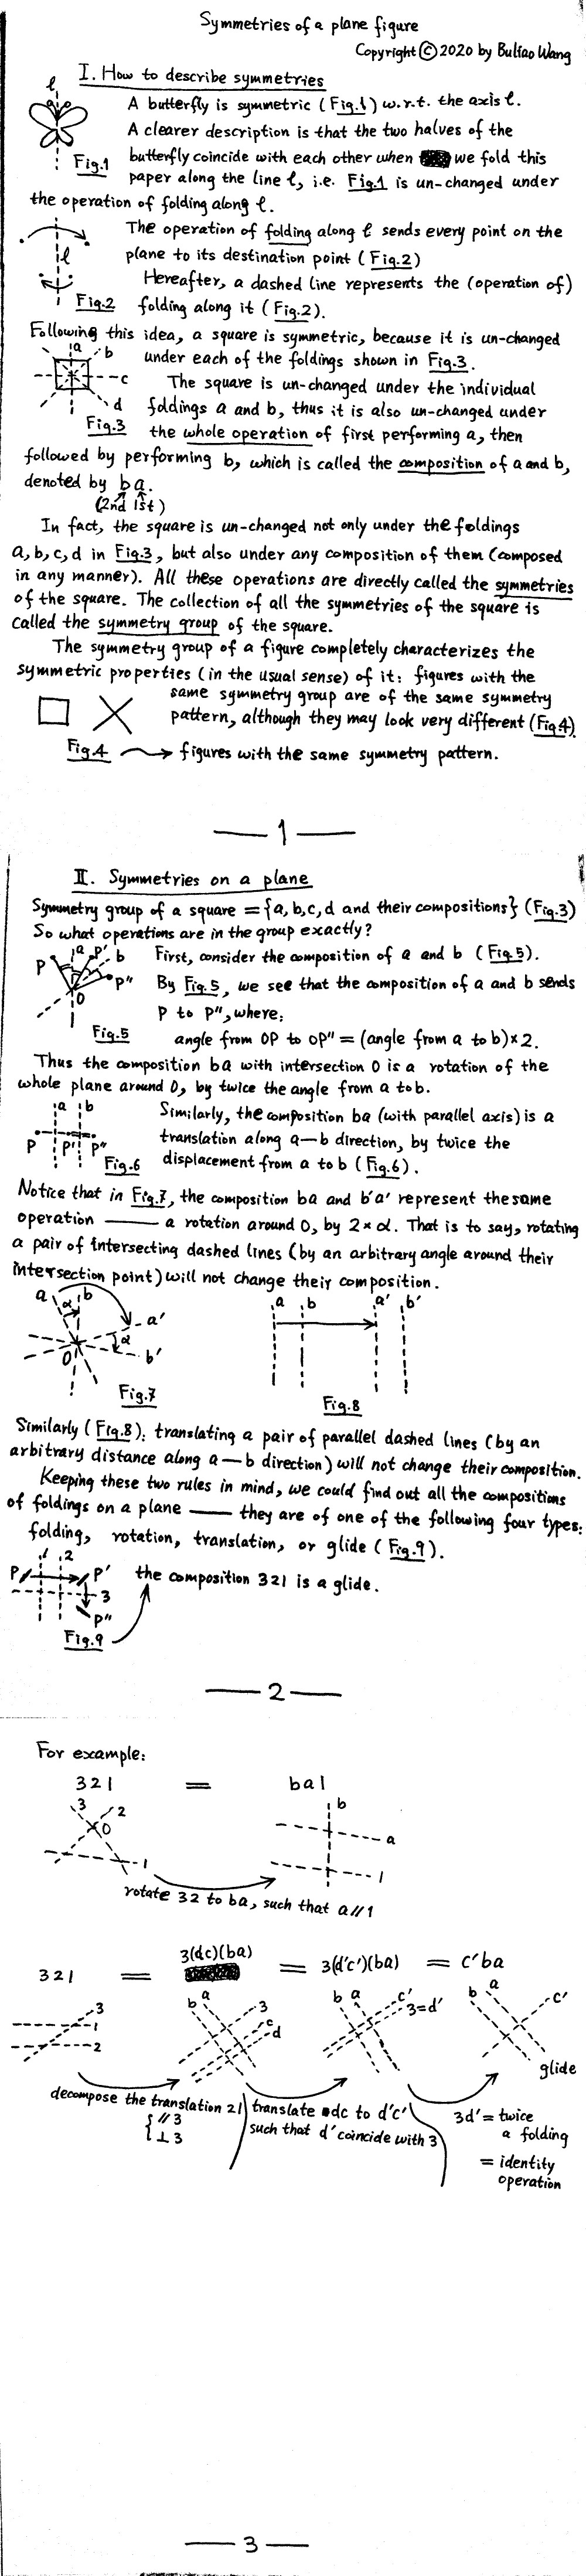 Symmetries of a plane figure
Copyright © 2020 by Buliao Wang
I. How to describe symmetries
l
A butterfly is symmetric (Fig.1) w.r.t. the axis l.
A clearer description is that the two halves of the
butterfly coincide with each other when we fold this
Fig.1
paper along the line l, i.e. Fig.1 is un-changed under
the operation of folding along l.
The operation of folding along l sends every point on the
l
plane to its destination point (Fig.2)
Hereafter, a dashed line represents the (operation of)
Fig.2
folding along it (Fig.2).
Following this idea, a square is symmetric, because it is un-changed
a b
under each of the foldings shown in Fig.3.
c
The square is un-changed under the individual
d
foldings a and b, thus it is also un-changed under
Fig.3
the whole operation of first performing a, then
followed by performing b, which is called the composition of a and b,
denoted by ba.
(2nd 1st)
In fact, the square is un-changed not only under the foldings
a, b, c, d in Fig.3, but also under any composition of them (composed
in any manner). All these operations are directly called the symmetries
of the square. The collection of all the symmetries of the square is
called the symmetry group of the square.
The symmetry group of a figure completely characterizes the
symmetric properties (in the usual sense) of it: figures with the
same symmetry group are of the same symmetry
pattern, although they may look very different (Fig.4).
Fig.4 figures with the same symmetry pattern.
— 1 —
II. Symmetries on a plane
Symmetry group of a square = {a, b, c, d and their compositions} (Fig.3)
So what operations are in the group exactly?
P a P' b
First, consider the composition of a and b (Fig.5).
P"
By Fig.5, we see that the composition of a and b sends
O
P to P", where:
Fig.5
angle from OP to OP" = (angle from a to b)×2.
Thus the composition ba with intersection O is a rotation of the
whole plane around O, by twice the angle from a to b.
a b
Similarly, the composition ba (with parallel axis) is a
P P' P"
translation along a—b direction, by twice the
Fig.6
displacement from a to b (Fig.6).
Notice that in Fig.7, the composition ba and b'a' represent the same
operation —— a rotation around O, by 2×α. That is to say, rotating
a pair of intersecting dashed lines (by an arbitrary angle around their
intersection point) will not change their composition.
a α b a' α b' O
a b a' b'
Fig.7
Fig.8
Similarly (Fig.8): translating a pair of parallel dashed lines (by an
arbitrary distance along a—b direction) will not change their composition.
Keeping these two rules in mind, we could find out all the compositions
of foldings on a plane —— they are of one of the following four types:
folding, rotation, translation, or glide (Fig.9).
1 2
P P'
the composition 321 is a glide.
3
P"
Fig.9
— 2 —
For example:
321 = ba1
3 2 O 1
b a 1
rotate 32 to ba, such that a//1
321 = 3(dc)(ba) = 3(d'c')(ba) = c'ba
3 1 2
b a 3 c d
b a c' 3=d'
b a c'
glide
decompose the translation 21
{ //3
⊥3
translate dc to d'c'
such that d' coincide with 3
3d' = twice
a folding
= identity
operation
— 3 —